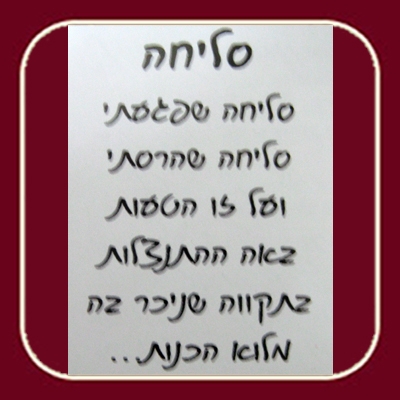 סליחה
סליחה שפגעתי
סליחה שהרסתי
ועל זו הטעות
באה ההתנצלות
בתקווה שניכר בה
מלוא הכנות..